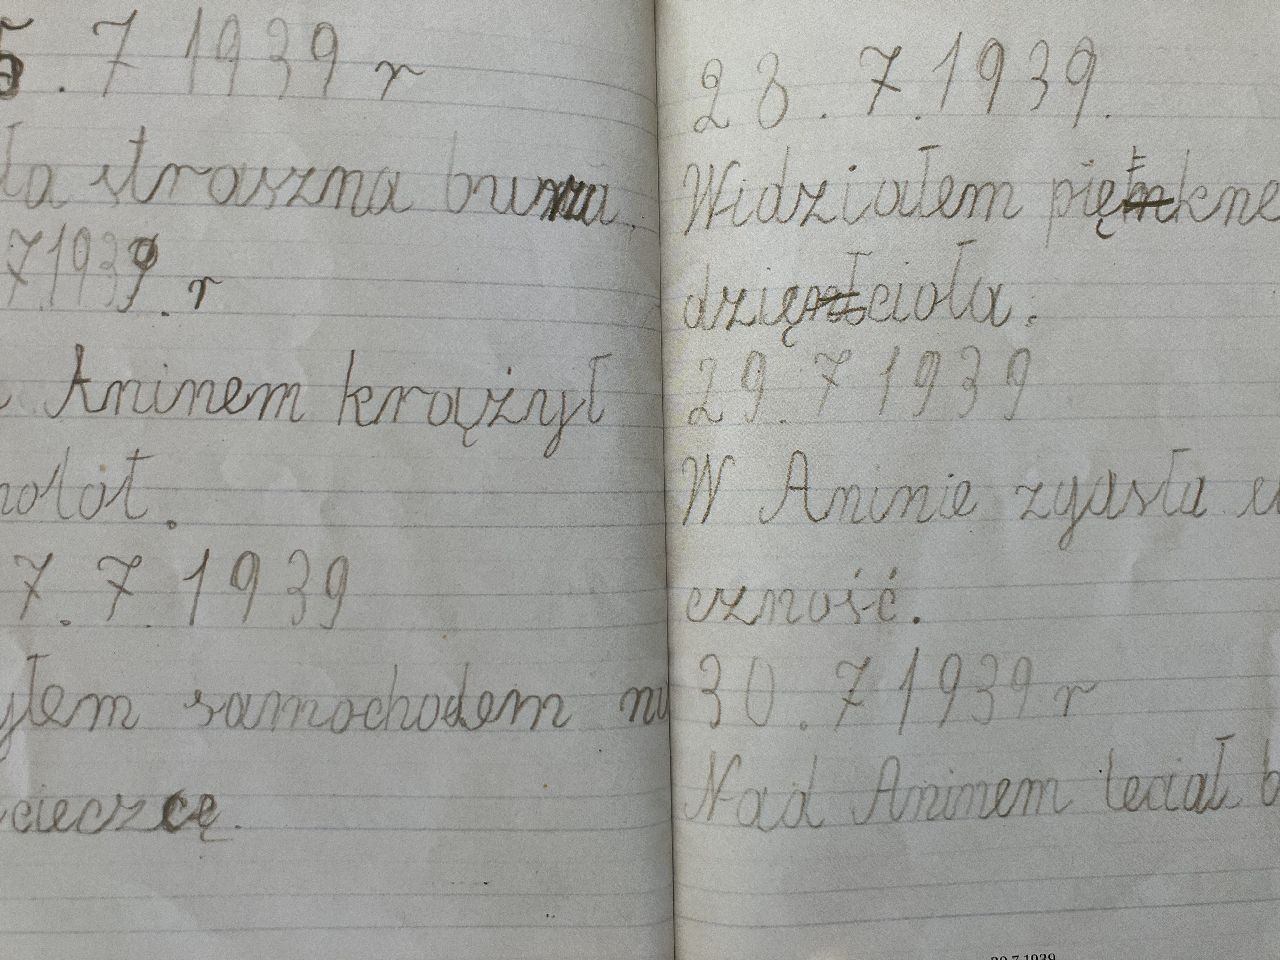 5. 7 1939 r
ła straszna burza.
7.1939. r
Aninem krążył
molot.
7. 7. 1939
yłem samochodem na
cieczcę.
28. 7. 1939.
Widziałem piękne
dzięcioła.
29. 7 1939
W Aninie zgasła e
czność.
30. 7 1939 r
Nad Aninem leciał b
30.7.1939